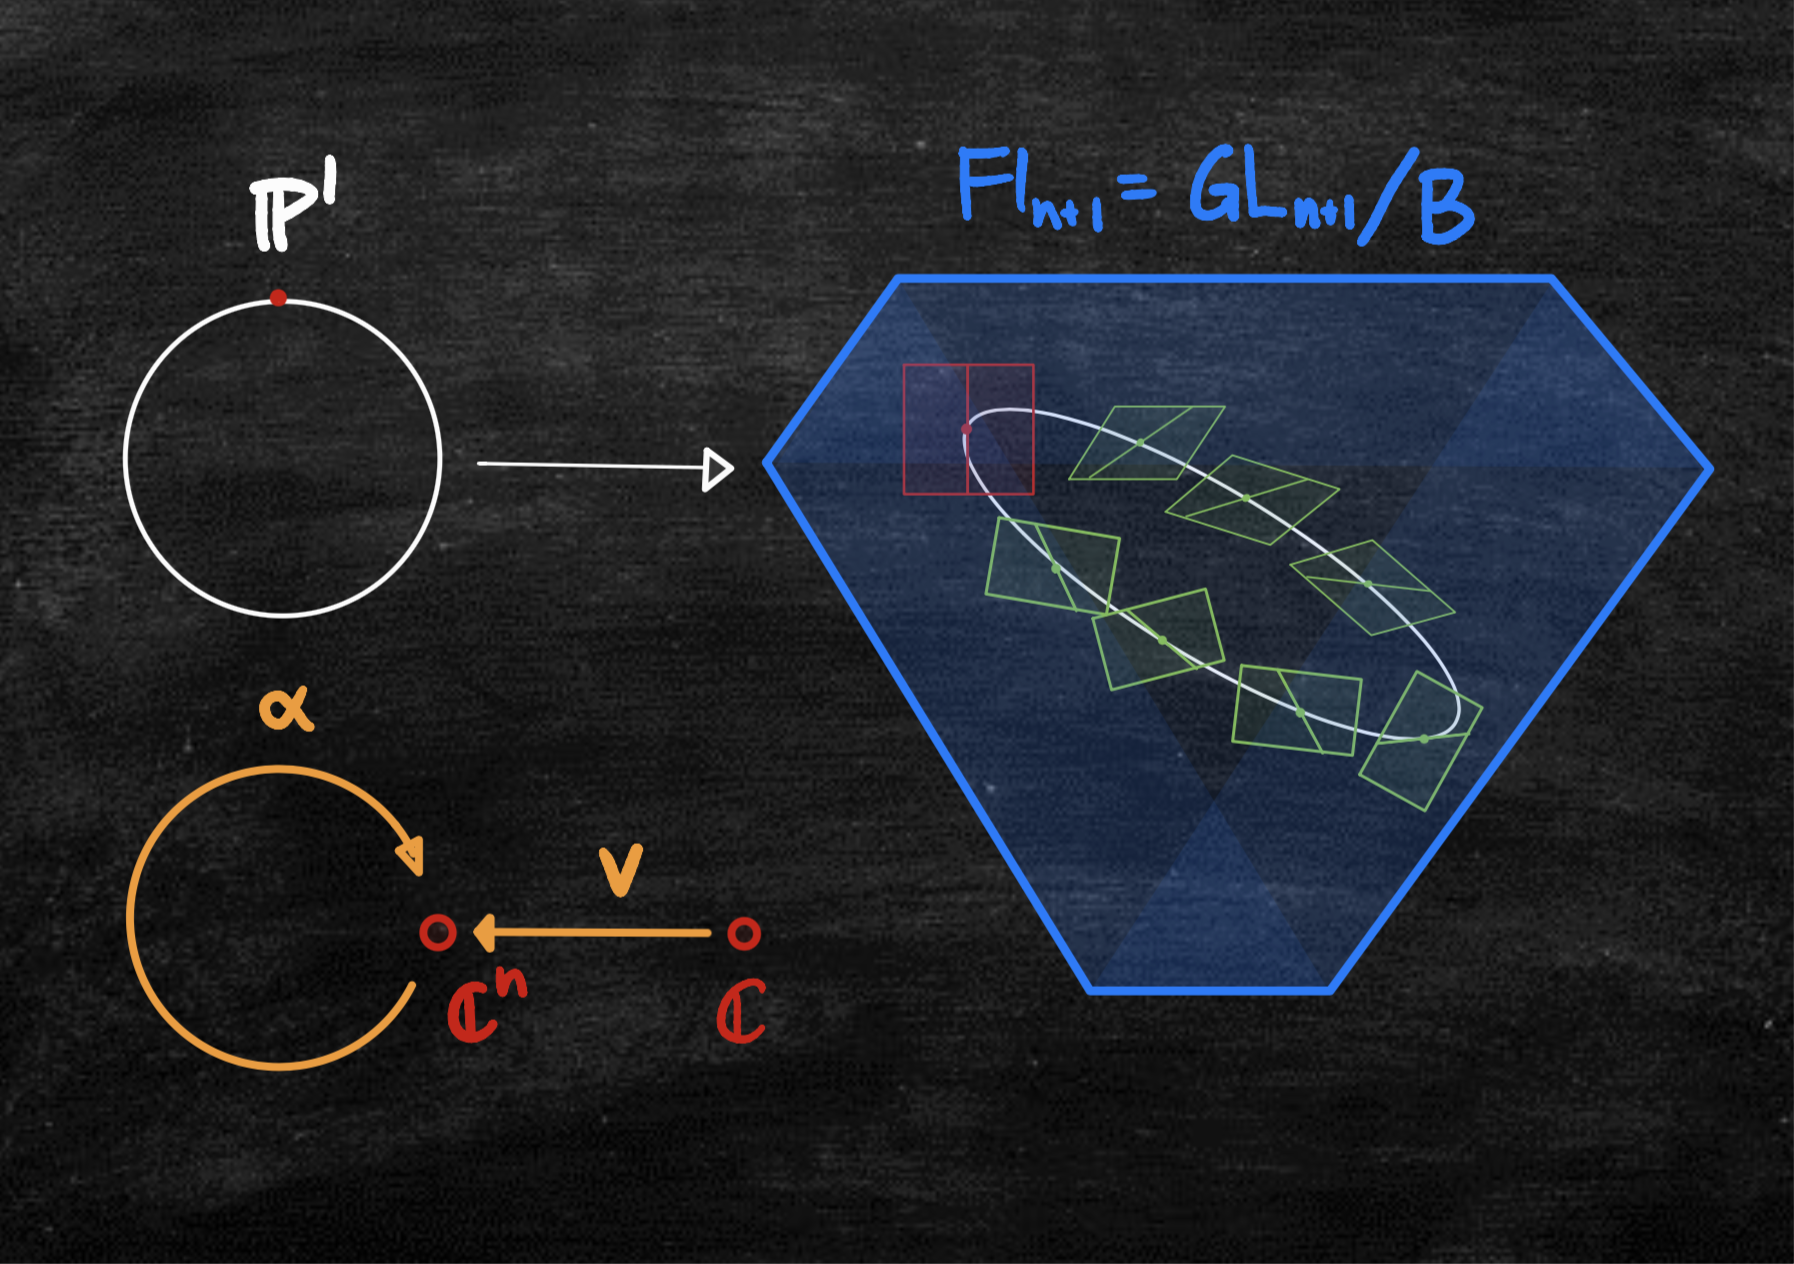 ℙ¹
Flₙ₊₁ = GLₙ₊₁/B
α
v
ℂⁿ
ℂ